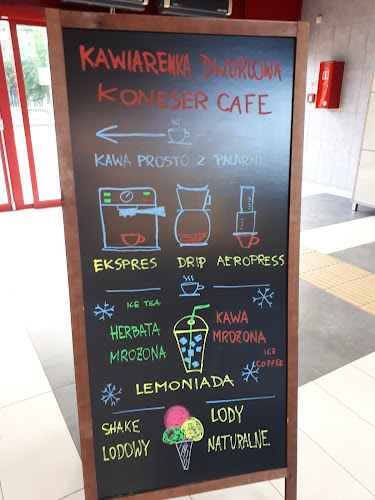 KAWIARENKA DWORCOWA
KONESER CAFE
KAWA PROSTO Z PALARNI
EKSPRES DRIP AEROPRESS
ICE TEA
HERBATA MROŻONA
KAWA MROŻONA
ICE COFFEE
LEMONIADA
SHAKE LODOWY
LODY NATURALNE